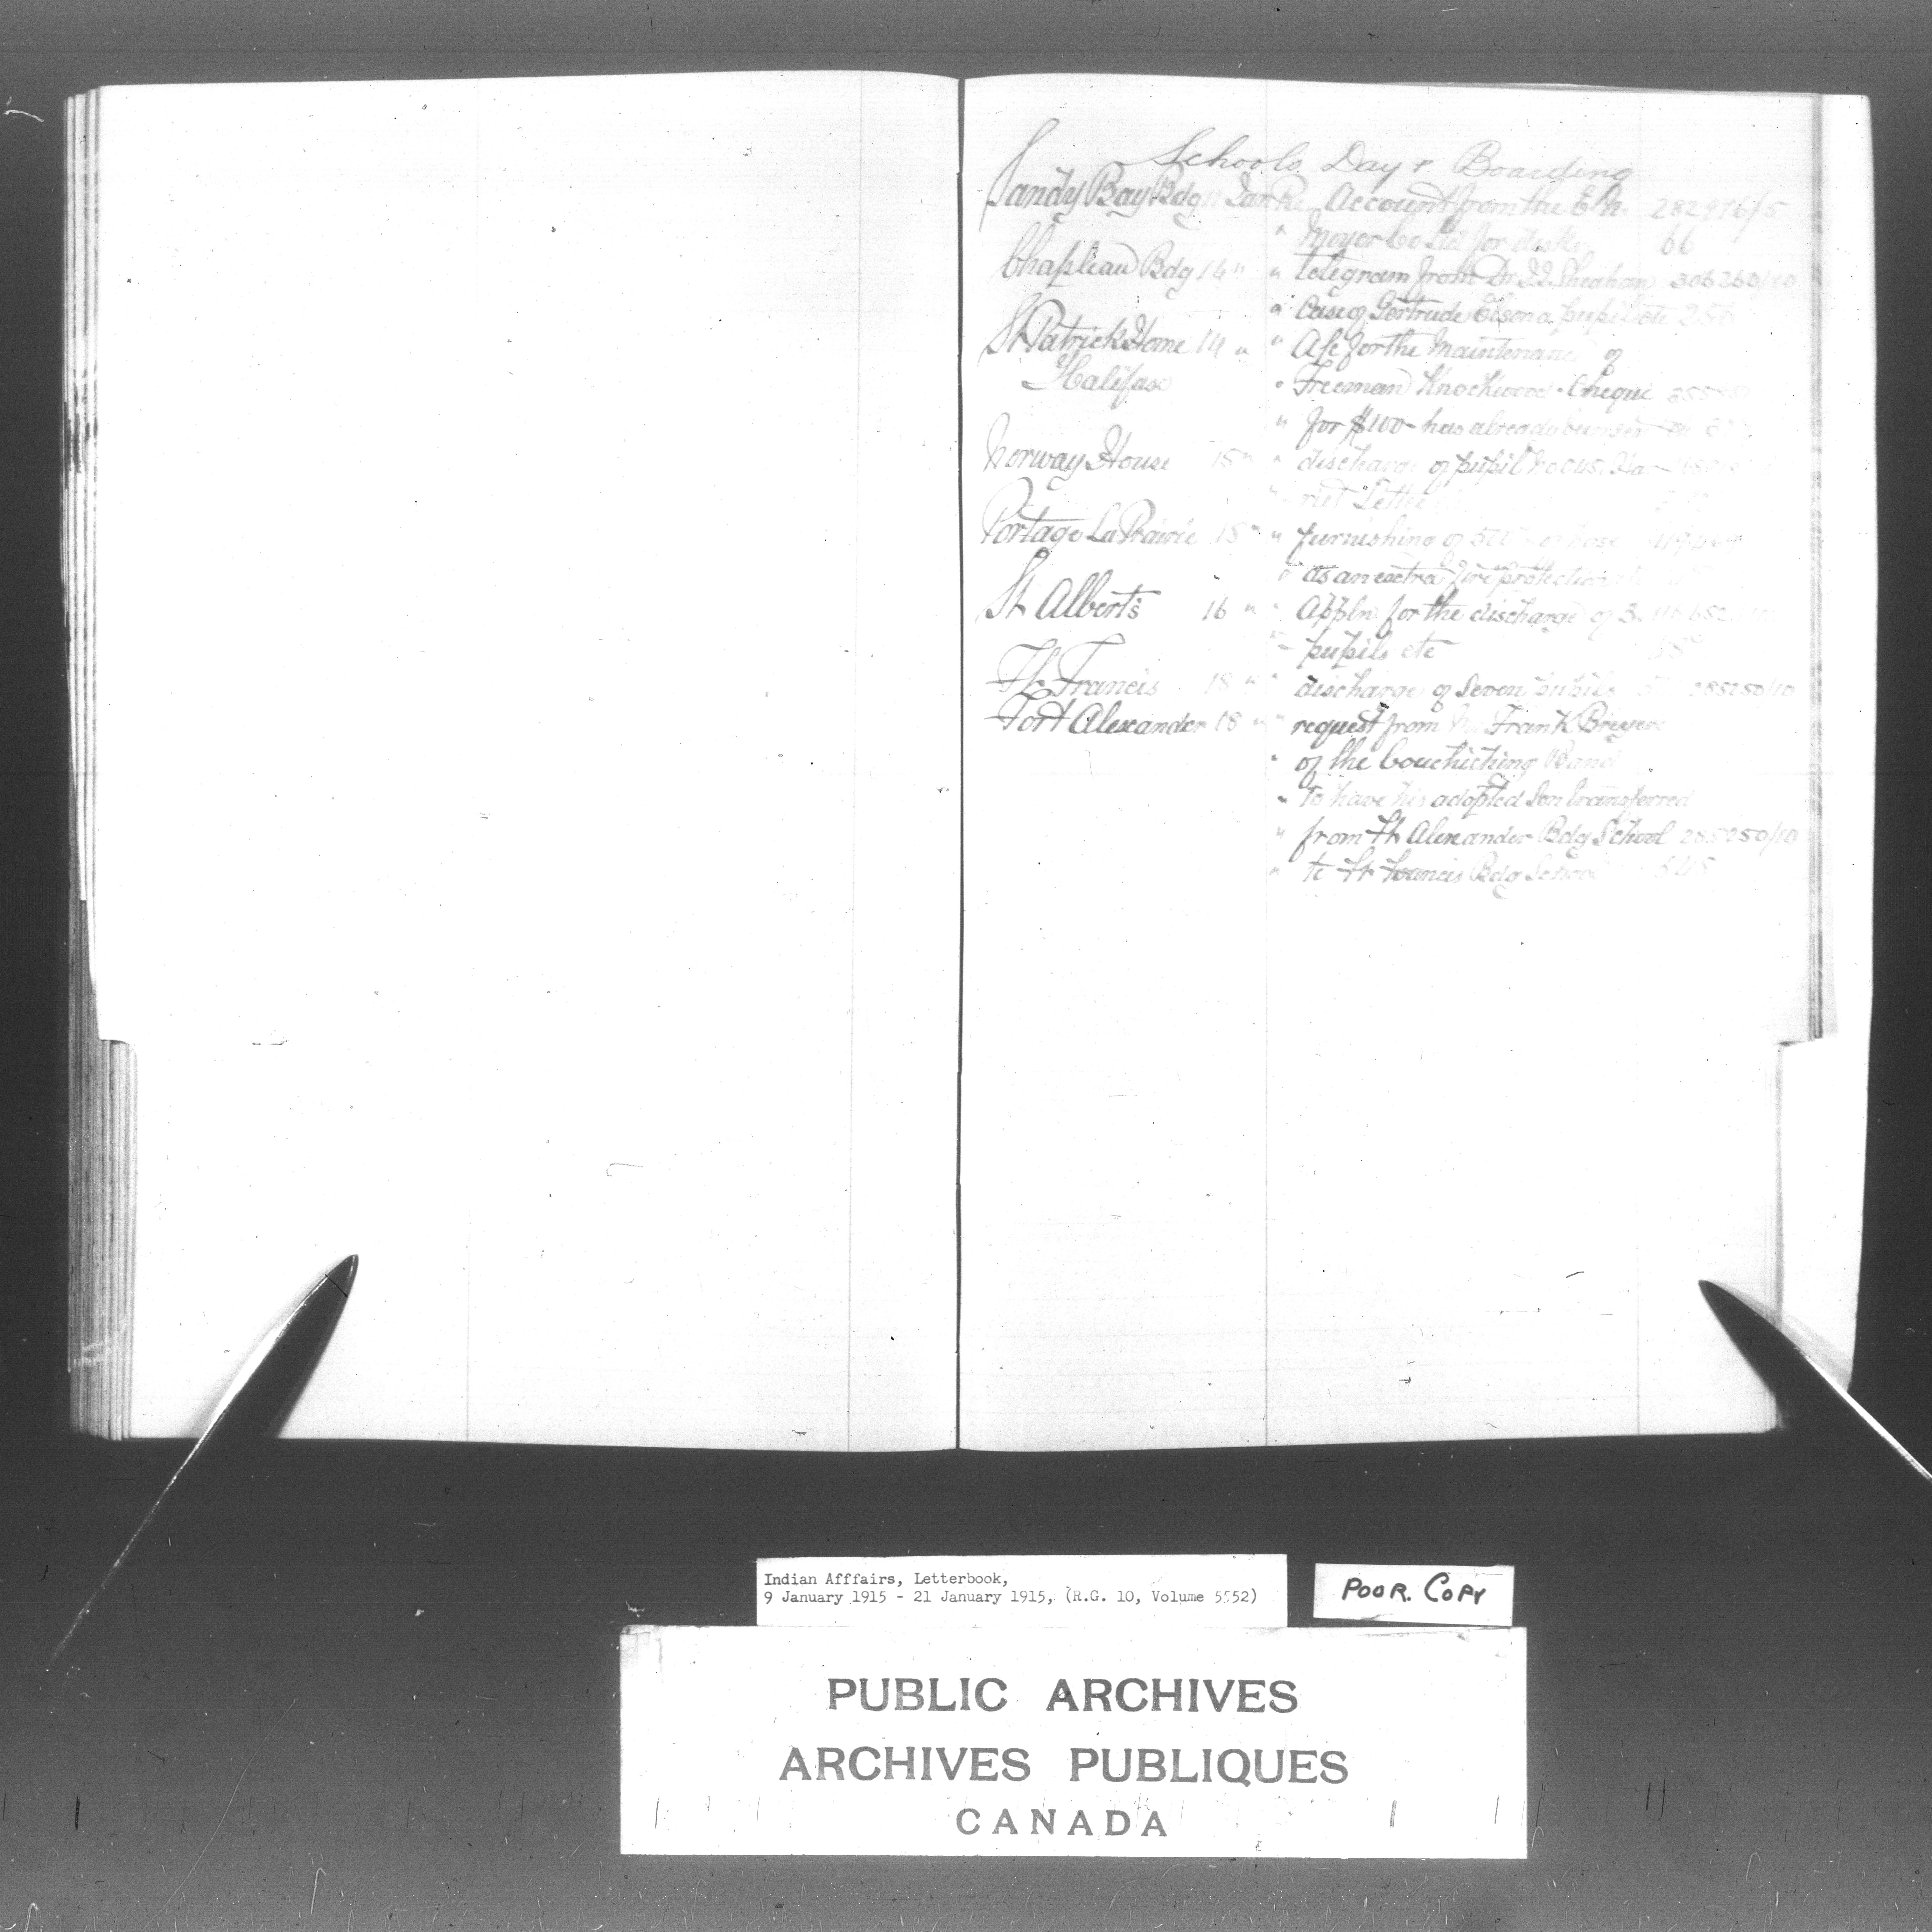 Schools Day & Boarding
Sandy Bay Bdg 11 Jan Re Account from the E.N. 282976/5
" Moyer Co Ltd for desks 66
Chapleau Bdg 14 " " telegram from Dr J J Sheahan 306260/10
" Case of Gertrude a pupil etc 250
St Patrick Home 14 " " A/c for the Maintenance of
Halifax " Freeman Knockwood - Cheque
" for $100 - has already been
Norway House 15 " " discharge of pupil
"
Portage La Prairie 15 " " furnishing of of hose
" as an extra fire protection
St Albert's 16 " " Appln for the discharge of 3
" pupils etc
Ft Francis 18 " " discharge of Seven pupils 285250/10
Fort Alexander 18 " " request from Frank
" of the Couchiching Band
" to have his adopted Son transferred
" from Ft Alexander Bdg School 285250/10
" to Ft Francis Bdg School
Indian Afffairs, Letterbook,
9 January 1915 - 21 January 1915, (R.G. 10, Volume 5552)
POOR. COPY
PUBLIC ARCHIVES
ARCHIVES PUBLIQUES
CANADA